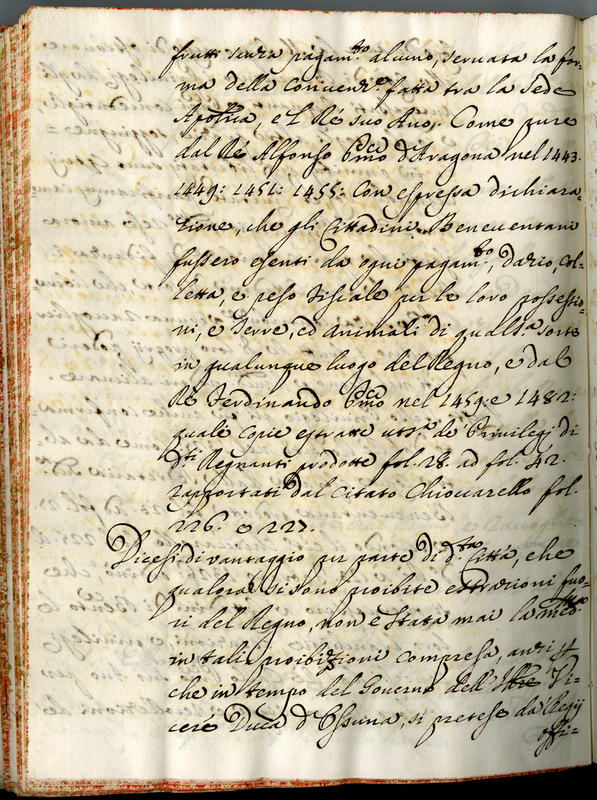 frutti senza pagam.to alcuno, servata la for-
ma della Convenz.e fatta tra la Sede
Ap͡olica, e 'l Ré suo Avo. Come pure
dal Ré Alfonso P͡rimo d'Aragona nel 1443.
1449: 1451: 1455: Con espressa dichiara-
zione, che gli Cittadini Beneventani
fussero esenti da ogni pagam.to, Dazio, Col-
letta, e peso Fiscale per le loro possessio-
ni, e Terre, ed Animali di qualsa sorte
in qualunque luogo del Regno, e dal
Ré Ferdinando P͡rimo nel 1459: e 1482:
quale copie estratte ut s.a de Privilegj di
d.ti Regnanti prodotte fol. 28. ad fol. 42.
rapportati dal Citato Chioccarello fol.
226. e 227.
Dicesi di vantaggio per parte di d.ta Città, che
qualora si sono proibite estrazioni fuo-
ri del Regno, non e stata mai la med.ma
in tali proibizioni compresa, anzi
che in tempo del Governo dell' Ill͡re Vi-
ceré Duca d'Ossuna, si pretese da Regij
offi-